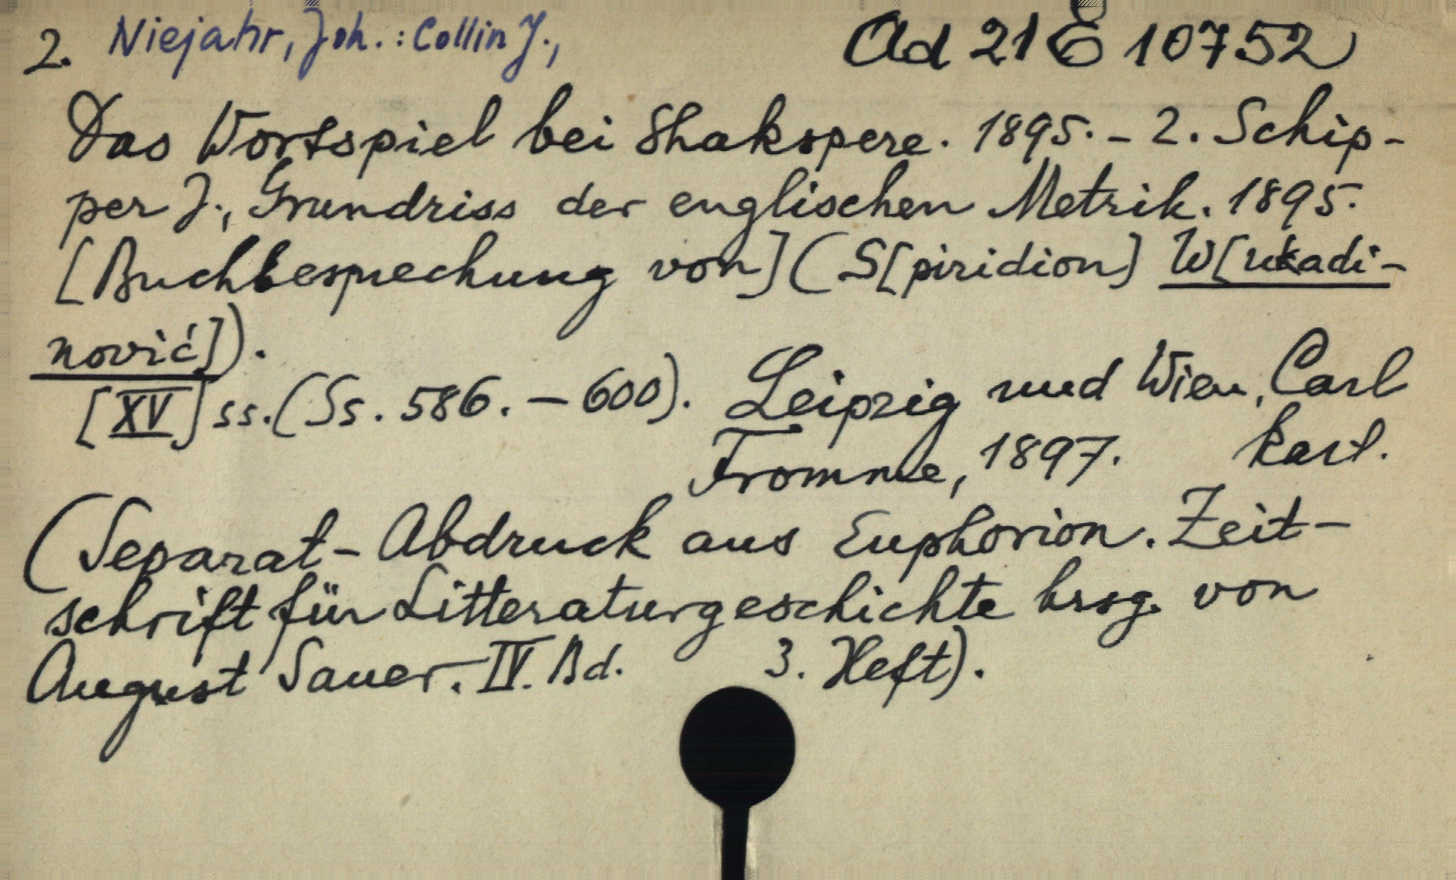 2. Niejahr, Joh. : Collin J., Ad 21 E 10752
Das Wortspiel bei Shakspere. 1895. - 2. Schip-
per J., Grundriss der englischen Metrik. 1895.
[Buchbesprechung von] (S[piridion] W[ukadi-
nović]).
[XV] ss. (Ss. 586. - 600). Leipzig und Wien, Carl
Fromme, 1897. kart.
(Separat-Abdruck aus Euphorion. Zeit-
schrift für Litteraturgeschichte hrsg. von
August Sauer. IV. Bd. 3. Heft).